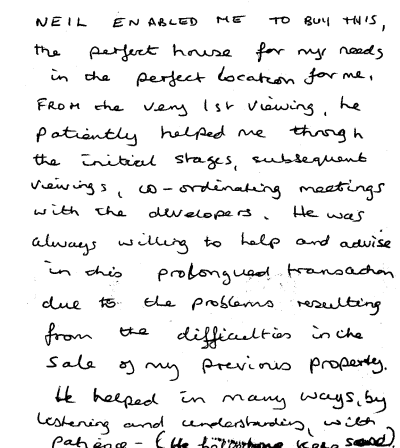 NEIL ENABLED ME TO BUY THIS,
the perfect house for my needs
in the perfect location for me.
FROM the very 1st viewing, he
patiently helped me through
the initial stages, subsequent
viewings, co-ordinating meetings
with the developers. He was
always willing to help and advise
in this prolongued transaction
due to the problems resulting
from the difficulties in the
sale of my previous property.
He helped in many ways, by
listening and understanding, with
patience - (He